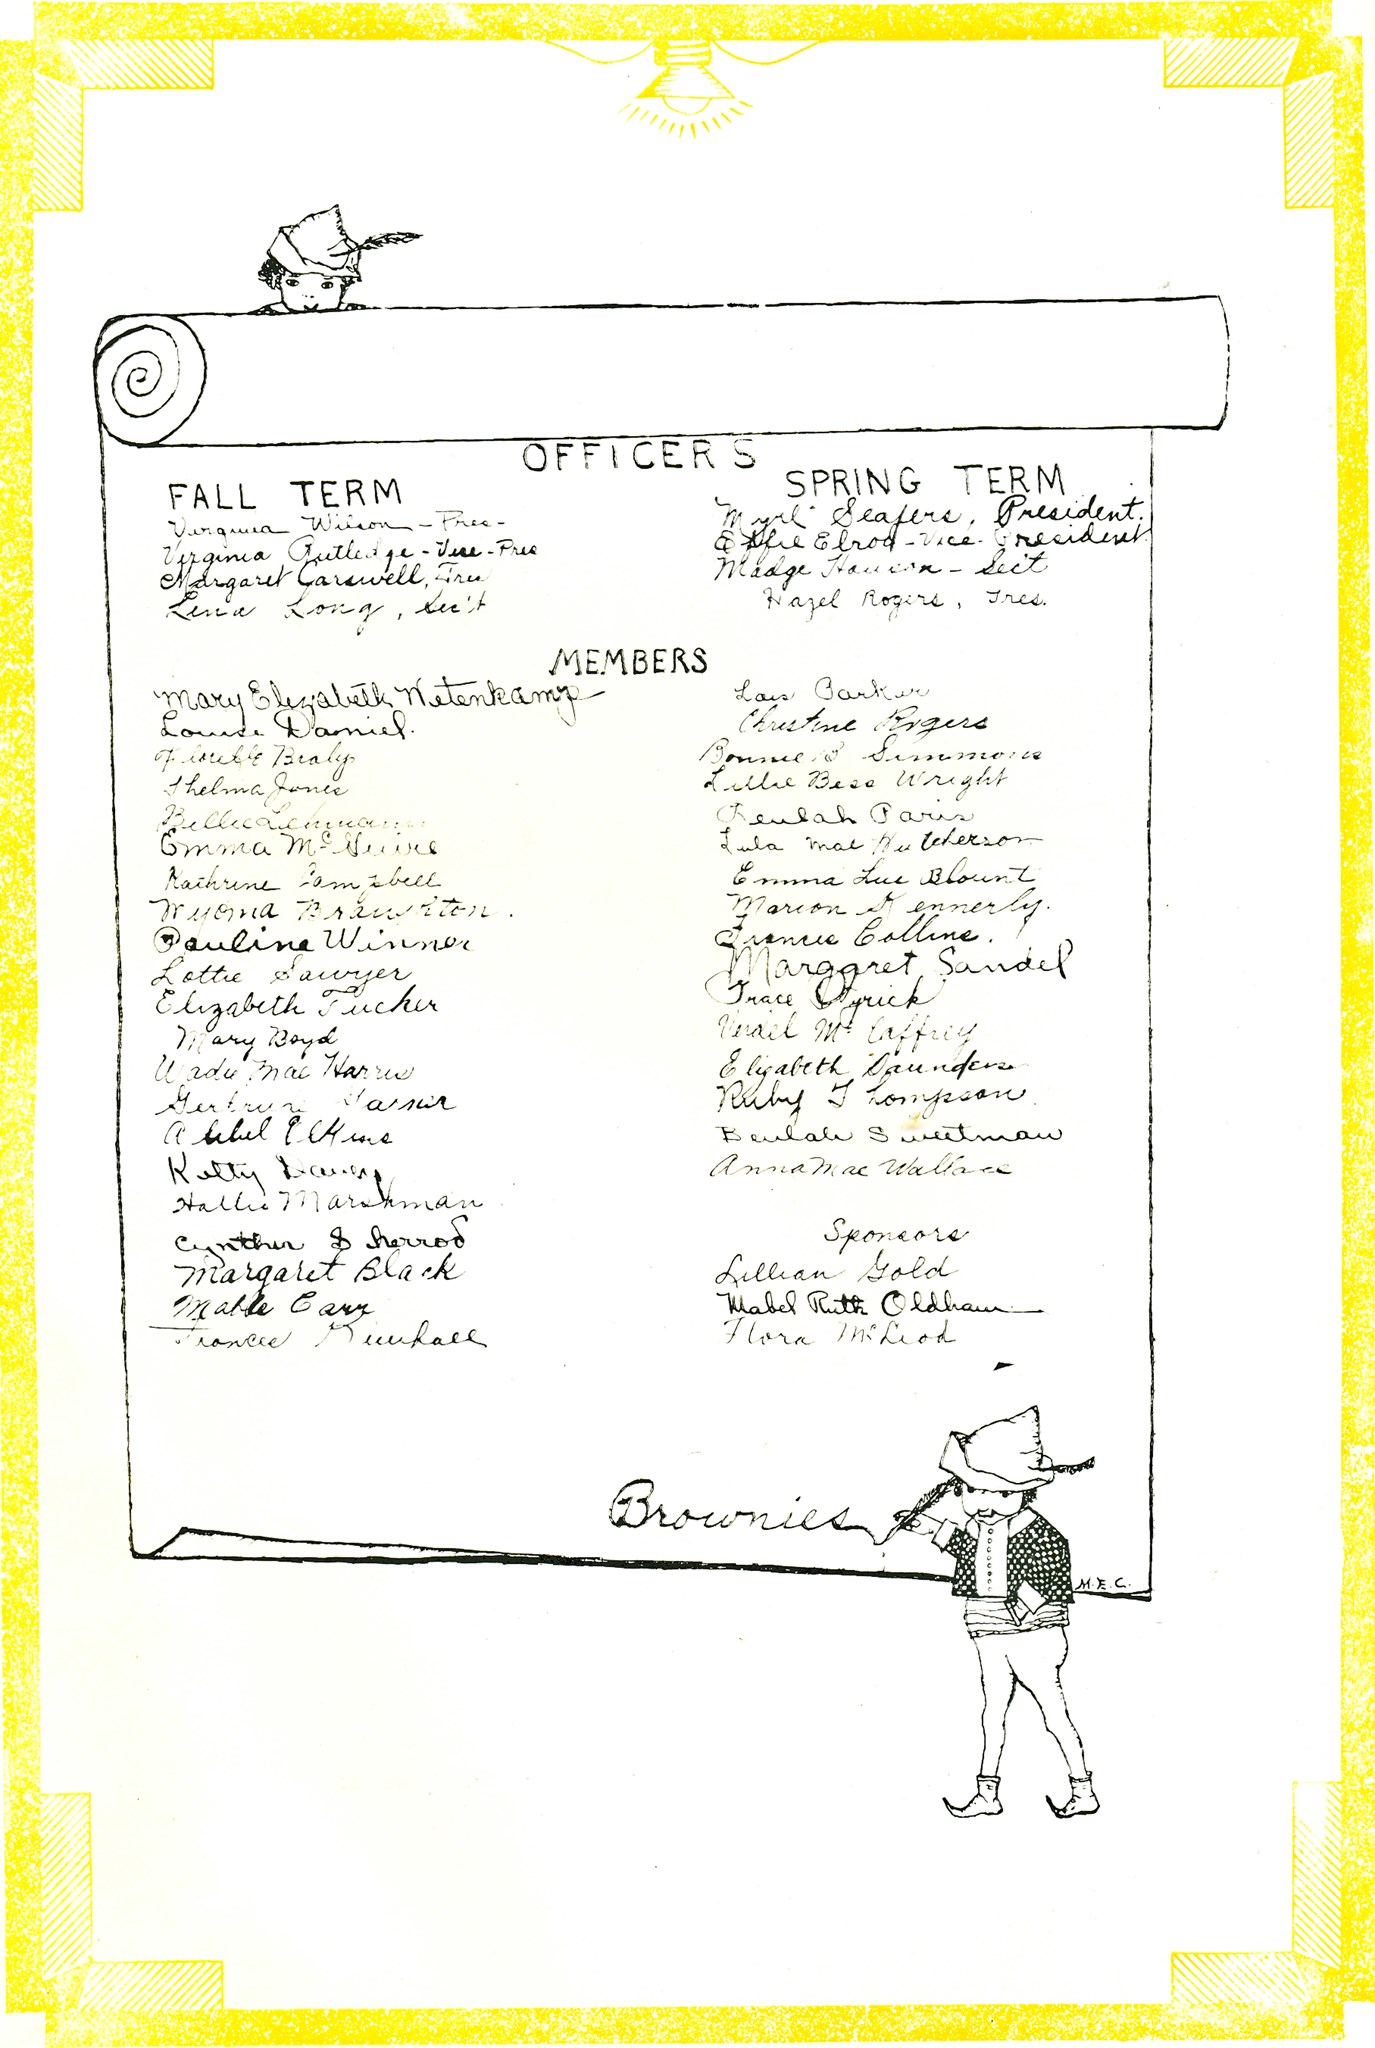 OFFICERS
FALL TERM
Virginia Wilson - Pres-
Virginia Rutledge - Vice - Pres
Margaret Carswell, Tres
Lena Long, Sec't
SPRING TERM
Myrl Seafers, President.
Effie Elrod - Vice. President.
Madge - Sec't
Hazel Rogers, Tres.
MEMBERS
Mary Elizabeth Wetenkamp
Louise Daniel.
Braly
Thelma Jones
Billie Lehmann
Emma McGuire
Kathrine Campbell
Wyoma
Pauline Winner
Lottie Sawyer
Elizabeth Tucker
Mary Boyd
Wadie Mae Harris
Gertrude
Elkins
Ketty Davey
Hallie Marshman
Sherrod
Margaret Black
Mable Carr
Frances Kimball
Lois Barker
Christine Rogers
Bonnie B Simmons
Lillie Bess Wright
Beulah Paris
Lula Mae Hutcherson
Emma Lue Blount
Marion Kennerly.
Francis Collins.
Marggret Sandel
Grace Myrick
Verdel McCaffrey
Elizabeth Saunders
Ruby Thompson
Beulah Sweetman
Anna Mae Wallace
Sponsors
Lillian Gold
Mabel Ruth Oldham
Flora McLeod
Brownies
M.E.C.